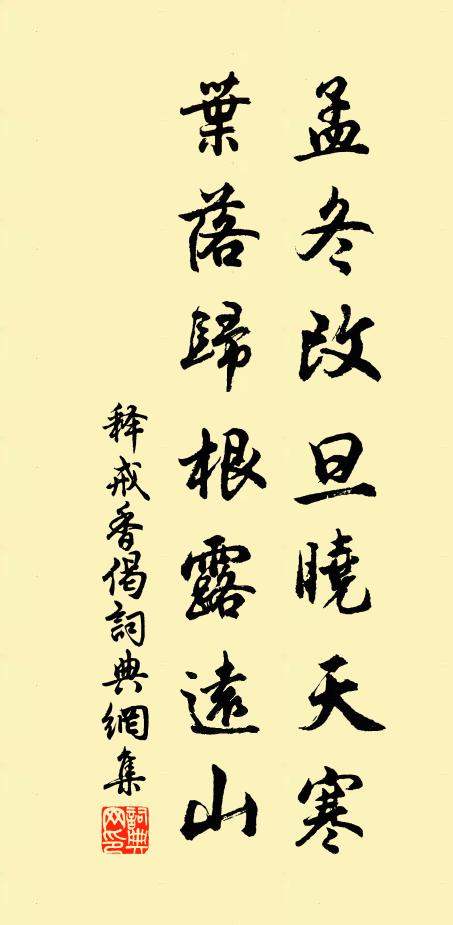 孟冬改旦曉天寒
葉落歸根露遠山
释戒香偈詞典網集
詞典網印